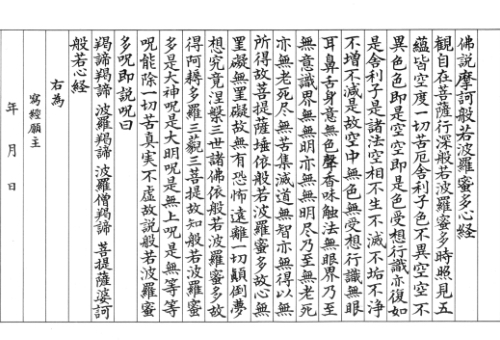 佛說摩訶般若波羅蜜多心經
觀自在菩薩行深般若波羅蜜多時照見五
蘊皆空度一切苦厄舍利子色不異空空不
異色色即是空空即是色受想行識亦復如
是舍利子是諸法空相不生不滅不垢不淨
不增不減是故空中無色無受想行識無眼
耳鼻舌身意無色聲香味觸法無眼界乃至
無意識界無無明亦無無明盡乃至無老死
亦無老死盡無苦集滅道無智亦無得以無
所得故菩提薩埵依般若波羅蜜多故心無
罣礙無罣礙故無有恐怖遠離一切顛倒夢
想究竟涅槃三世諸佛依般若波羅蜜多故
得阿耨多羅三藐三菩提故知般若波羅蜜
多是大神呪是大明呪是無上呪是無等等
呪能除一切苦真実不虛故說般若波羅蜜
多呪即說呪曰
羯諦羯諦 波羅羯諦 波羅僧羯諦 菩提薩婆訶
般若心經
右為
寫經願主
年 月 日